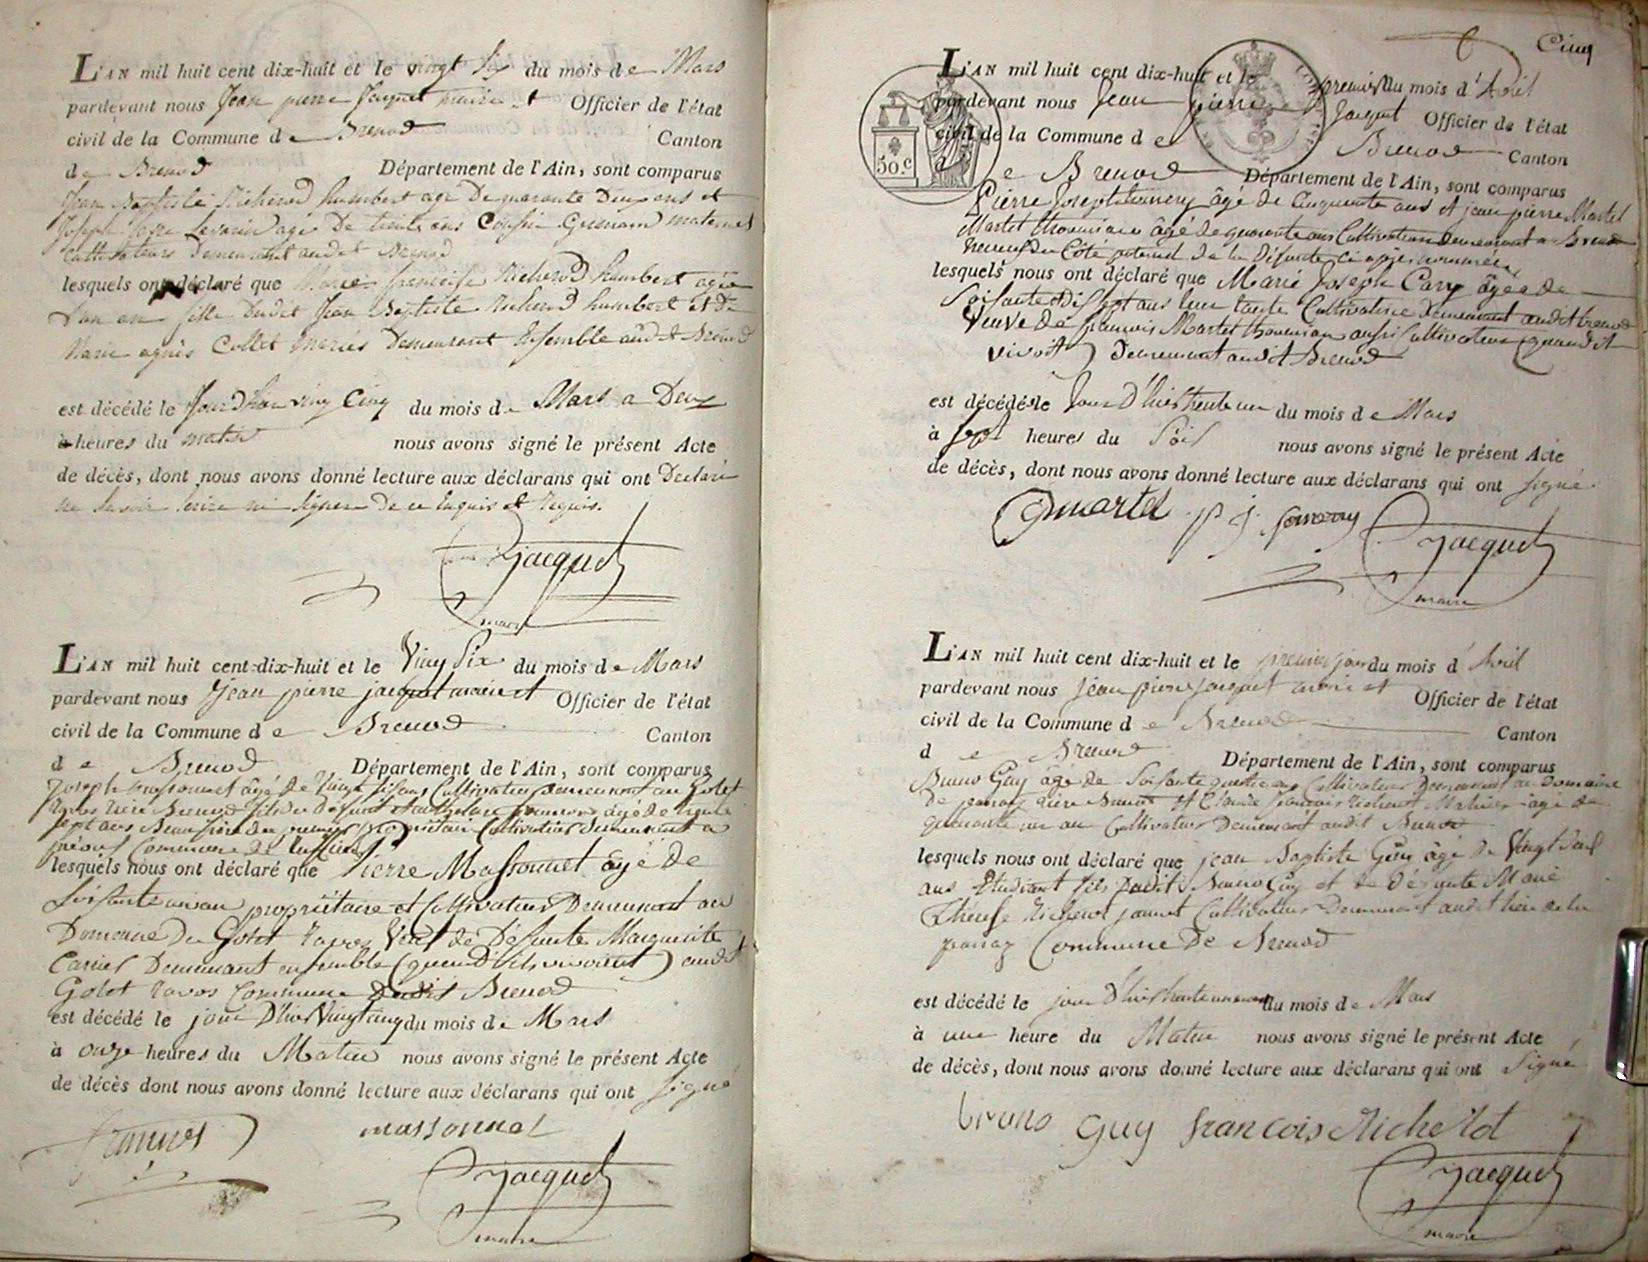 L'AN mil huit cent dix-huit et le vingt six du mois de Mars
pardevant nous Jean pierre Jacquet maire et Officier de l'état
civil de la Commune de Brenod Canton
de Brenod Département de l'Ain, sont comparus
Jean Baptiste Richerod humbert agé De quarante Deux ans et
Joseph agé De trente ans Cousin Germain maternel
cultivateurs Demeurant audit Brenod
lesquels ont déclaré que Marie françoise Richerod humbert agée
D'un an fille Dudit Jean Baptiste Richerod humbert et De
Marie agnès Collet mariés Demeurant Ensemble audit Brenod
est décédé le Jour D'hier vingt Cinq du mois de Mars a Deux
à heures du matin nous avons signé le présent Acte
de décès, dont nous avons donné lecture aux déclarans qui ont Declaré
ne savoir Ecrire ni signer De ce Enquis et Requis.
Jacquet
maire
L'AN mil huit cent-dix-huit et le Vingt Six du mois de Mars
pardevant nous Jean pierre jacquet maire et Officier de l'état
civil de la Commune de Brenod Canton
de Brenod Département de l'Ain, sont comparus
Joseph massonnet âgé de Vingt six ans Cultivateur demeurant au Golet
Ravos rière Brenod fils du défunt et âgé de trente
sept ans Beau frère du premier propriétaire Cultivateur demeurant a
Commune de
lesquels nous ont déclaré que Pierre Massonnet âgé de
Soisante un an propriétaire et Cultivateur Demeurant au
Domaine Du Golet Ravos Veuf de Défunte Marguerite
Carrier Demeurant ensemble (quand ils vivoient) audit
Golet Ravos Commune dudit Brenod
est décédé le jour D'hier Vingt cinq du mois de Mars
à onze heures du Matin nous avons signé le présent Acte
de décès dont nous avons donné lecture aux déclarans qui ont signé
massonnet
Jacquet
maire
Cinq
50 c
L'AN mil huit cent dix-huit et le premier du mois d'Avril
pardevant nous Jean pierre Jacquet Officier de l'état
civil de la Commune de Brenod Canton
de Brenod Département de l'Ain, sont comparus
Pierre Joseph âgé de Cinquante ans et jean pierre Martel
Martel thomeniau âgé de quarante ans Cultivateurs demeurant a Brenod
neveux du Côté paternel de la Défunte Ci après nommée
lesquels nous ont déclaré que Marie Joseph Cary âgée de
Soisante et Dis sept ans leur tante Cultivatrice demeurant audit Brenod
Veuve de françois Martel thomeniau aussi Cultivateur (quand il
vivoit) demeurant audit Brenod
est décédé le Jour D'hier trente un du mois de Mars
à sept heures du Soir nous avons signé le présent Acte
de décès, dont nous avons donné lecture aux déclarans qui ont signé.
martel p j
Jacquet
maire
L'AN mil huit cent dix-huit et le premier jour du mois d'Avril
pardevant nous Jean pierre Jacquet maire et Officier de l'état
civil de la Commune de Brenod Canton
de Brenod Département de l'Ain, sont comparus
Bruno Guy âgé de Soisante quatre ans Cultivateur Demeurant au Domaine
De rière Brenod et Claude françois Richerot âgé de
quarante un an Cultivateur Demeurant audit Brenod
lesquels nous ont déclaré que jean Baptiste Guy âgé De Vingt Six
ans Etudiant fils Dudit Bruno Guy et De Défunte Marie
Thérese Richerot jannet Cultivateur Demeurant audit lieu de la
Commune De Brenod
est décédé le jour D'hier trente un du mois de Mars
à une heure du Matin nous avons signé le présent Acte
de décès, dont nous avons donné lecture aux déclarans qui ont Signé
bruno guy francois Richerot
Jacquet
maire